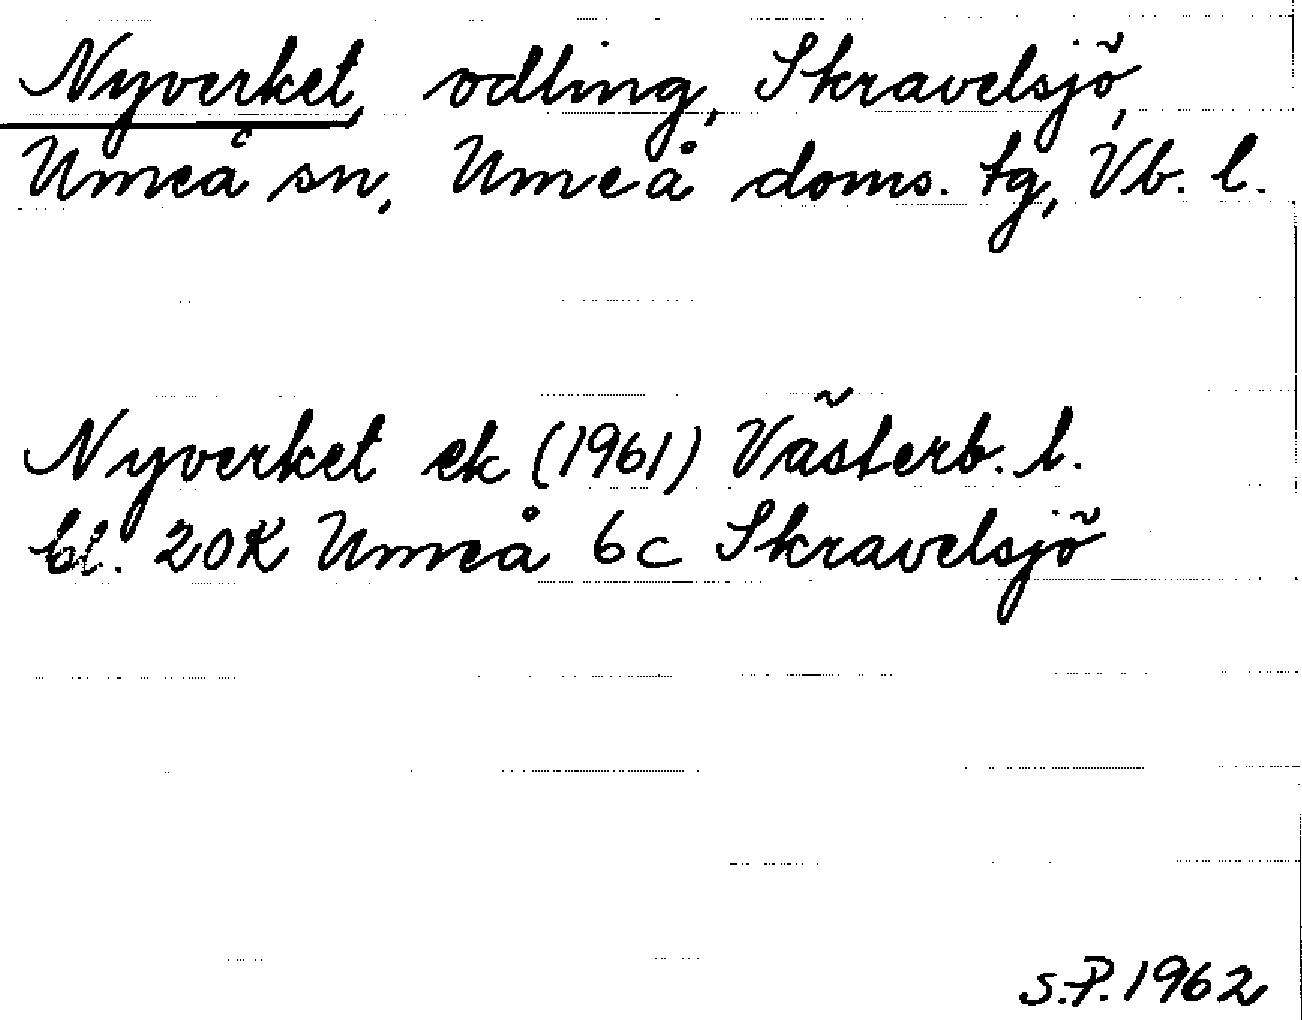 Nyverket, odling, Skravelsjö,
Umeå sn, Umeå doms. tg, Vb. l.
Nyverket ek (1961) Västerb. l.
bl. 20K Umeå 6c Skravelsjö
S.P. 1962